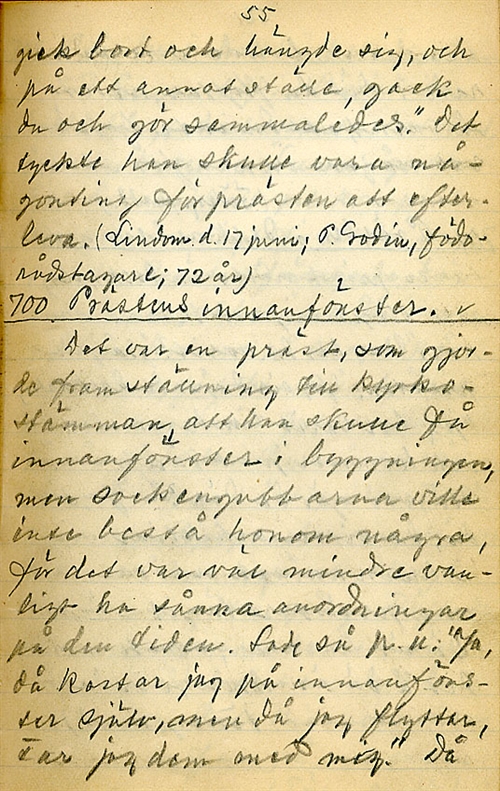 55
gick bort och hängde sig, och
på ett annat ställe, gack
du och gör sammaledes." Det
tyckte han skulle vara nå-
gonting för prästen att efter-
leva. (Lindom. d. 17 juni; P. Godin, födo-
rådstagare; 72 år)
700 Prästens innanfönster. v
Det var en präst, som gjor-
de framställning till kyrko-
stämman, att han skulle få
innanfönster i byggningen,
men sockengubbarna ville
inte bestå honom några,
för det var väl mindre van-
ligt ha sånna anordningar
på den tiden. Sade så p.n: "Ja,
då kostar jag på innanföns-
ter själv, men då jag flyttar,
tar jag dem med mig." Då